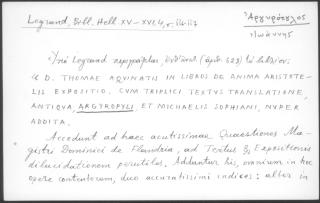 Legrand, Bibl. Hell. XV–XVI, 4, σ. 116-117
Ἀργυρόπουλος
Ἰωάννης
Ὑπὸ Legrand περιγράφεται ἐνταῦθα (ἀριθ. 523) τὸ βιβλίον:
D. THOMAE AQVINATIS IN LIBROS DE ANIMA ARISTOTE-
LIS EXPOSITIO. CVM TRIPLICI TEXTVS TRANSLATIONE,
ANTIQVA, ARGYROPYLI ET MICHAELIS SOPHIANI, NVPER
ADDITA.
Accedunt ad haec acutissimae Quaestiones Ma-
gistri Dominici de Flandria, ad Textus & Expositionis
dilucidationem perutiles. Adduntur his, omnium in hoc
opere contentorum, duo accuratissimi indices: alter in